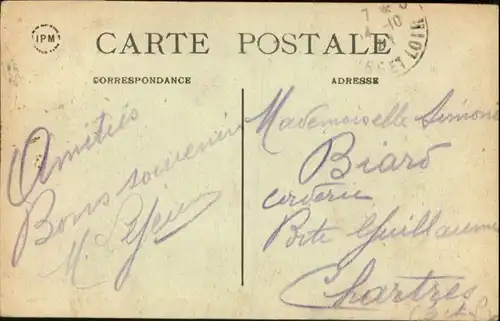 IPM
CARTE POSTALE
CORRESPONDANCE
ADRESSE
ET LOIR
Amitiés
Bons souvenirs
M.
Mademoiselle Simone
Biard
corderie
Porte Guillaume
Chartres